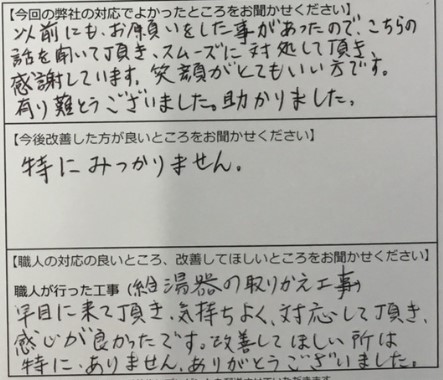 【今回の弊社の対応でよかったところをお聞かせください】
以前にも、お願いをした事があったので、こちらの
話を聞いて頂き、スムーズに対処して頂き、
感謝しています。笑顔がとてもいい方です。
有り難とうございました。助かりました。
【今後改善した方が良いところをお聞かせください】
特にみつかりません。
【職人の対応の良いところ、改善してほしいところをお聞かせください】
職人が行った工事(給湯器の取りかえ工事)
早目に来て頂き、気持ちよく、対応して頂き、
感じが良かったです。改善してほしい所は
特に、ありません。ありがとうございました。